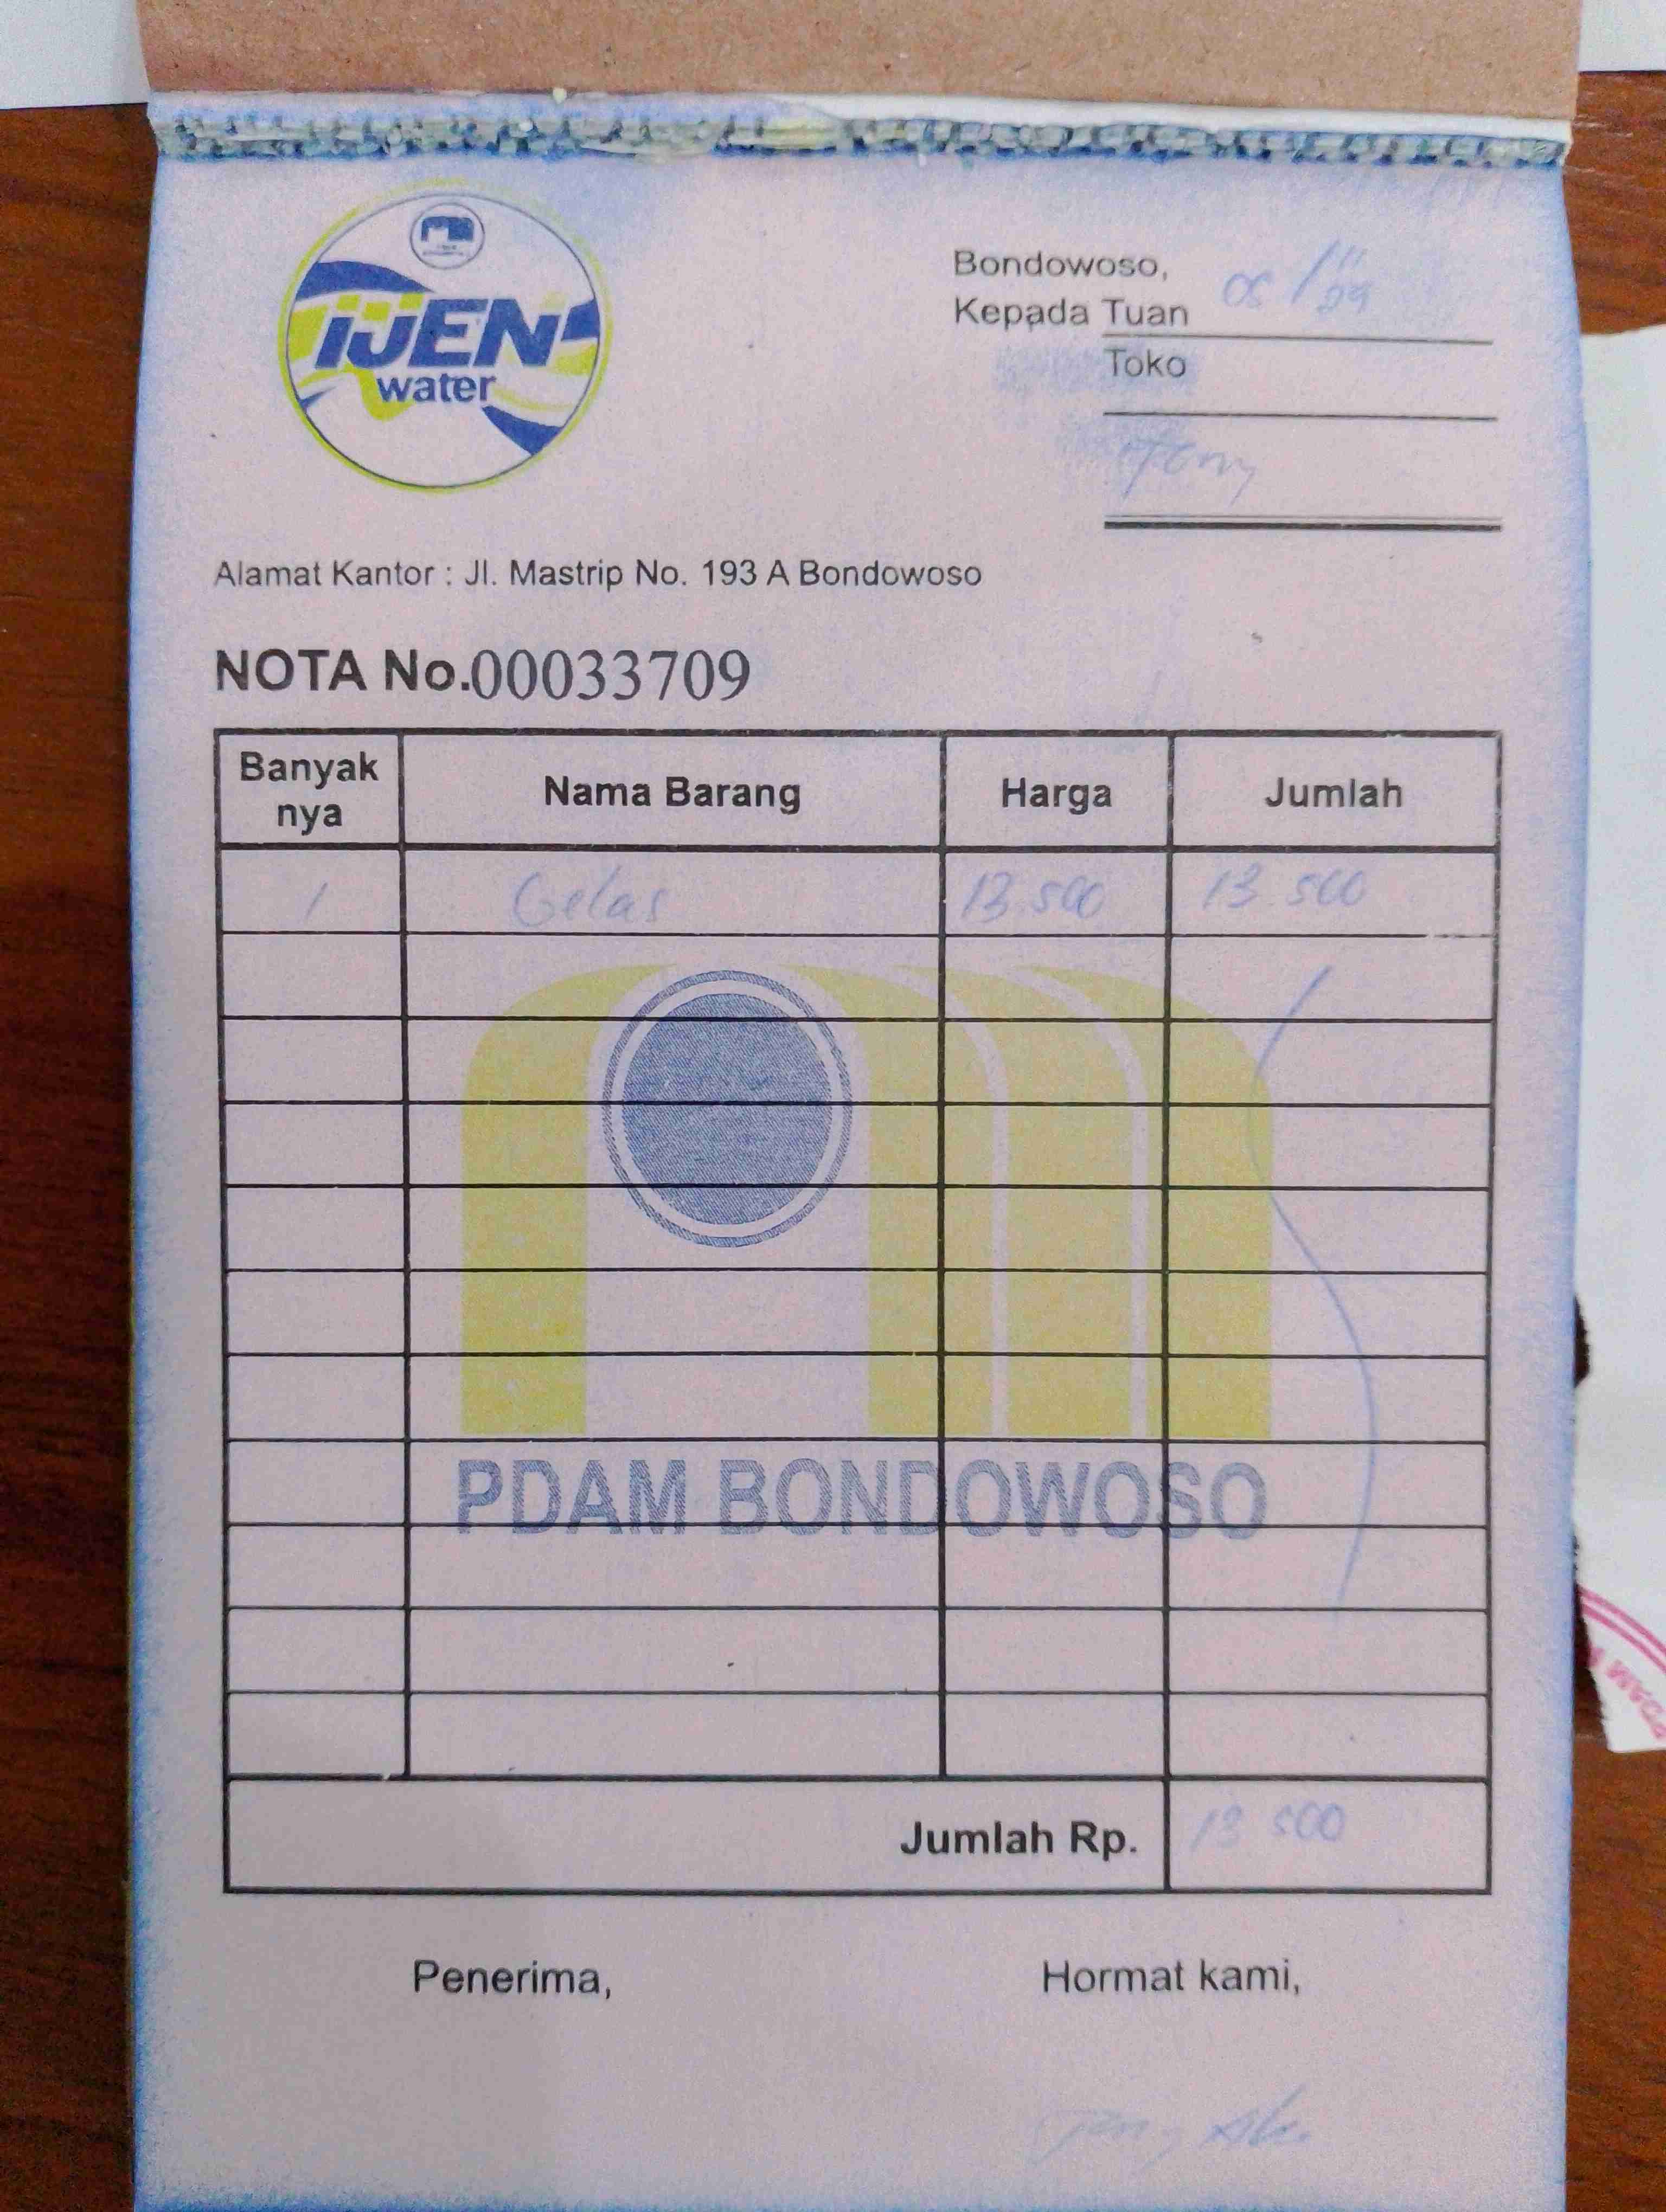 iJEN
water
Bondowoso,
Kepada Tuan
Toko
Tony
Alamat Kantor : Jl. Mastrip No. 193 A Bondowoso
NOTA No.00033709
Banyak nya Nama Barang Harga Jumlah
1 Gelas 13.500 13 500
PDAM BONDOWOSO
Jumlah Rp. 13 500
Penerima, Hormat kami,